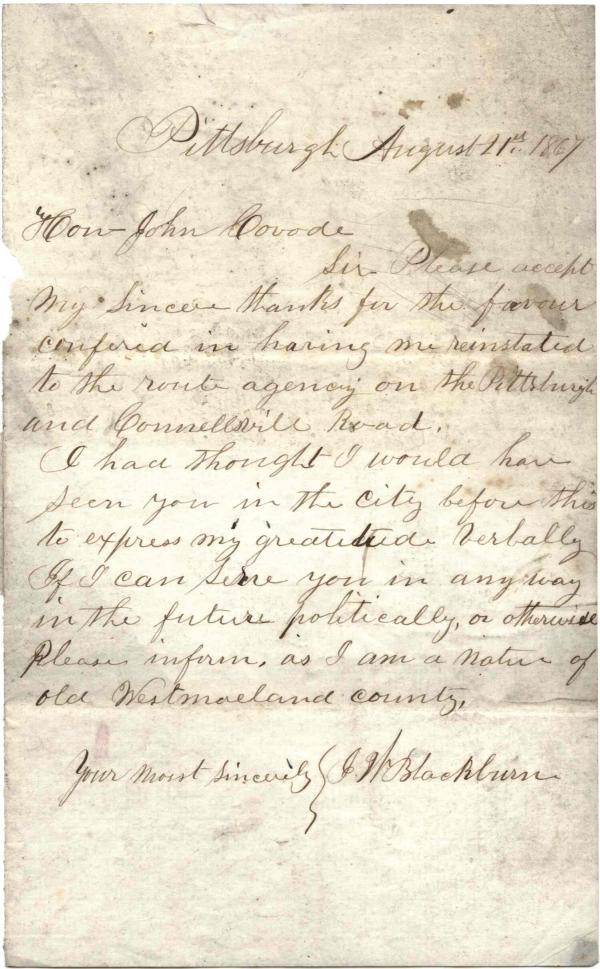 Pittsburgh August 21st 1867
Hon John Covode
Sir Please accept
My Sincere thanks for the favour
confired in having me reinstated
to the route agency on the Pittsburgh
and Connellsvill Road.
I had thought I would have
seen you in the city before this
to express my greatitude Verbally
If I can serve you in any way
in the future politically, or otherwise
Please inform, as I am a native of
old Westmoeland county,
Your Most Sincerely J W Blackburn